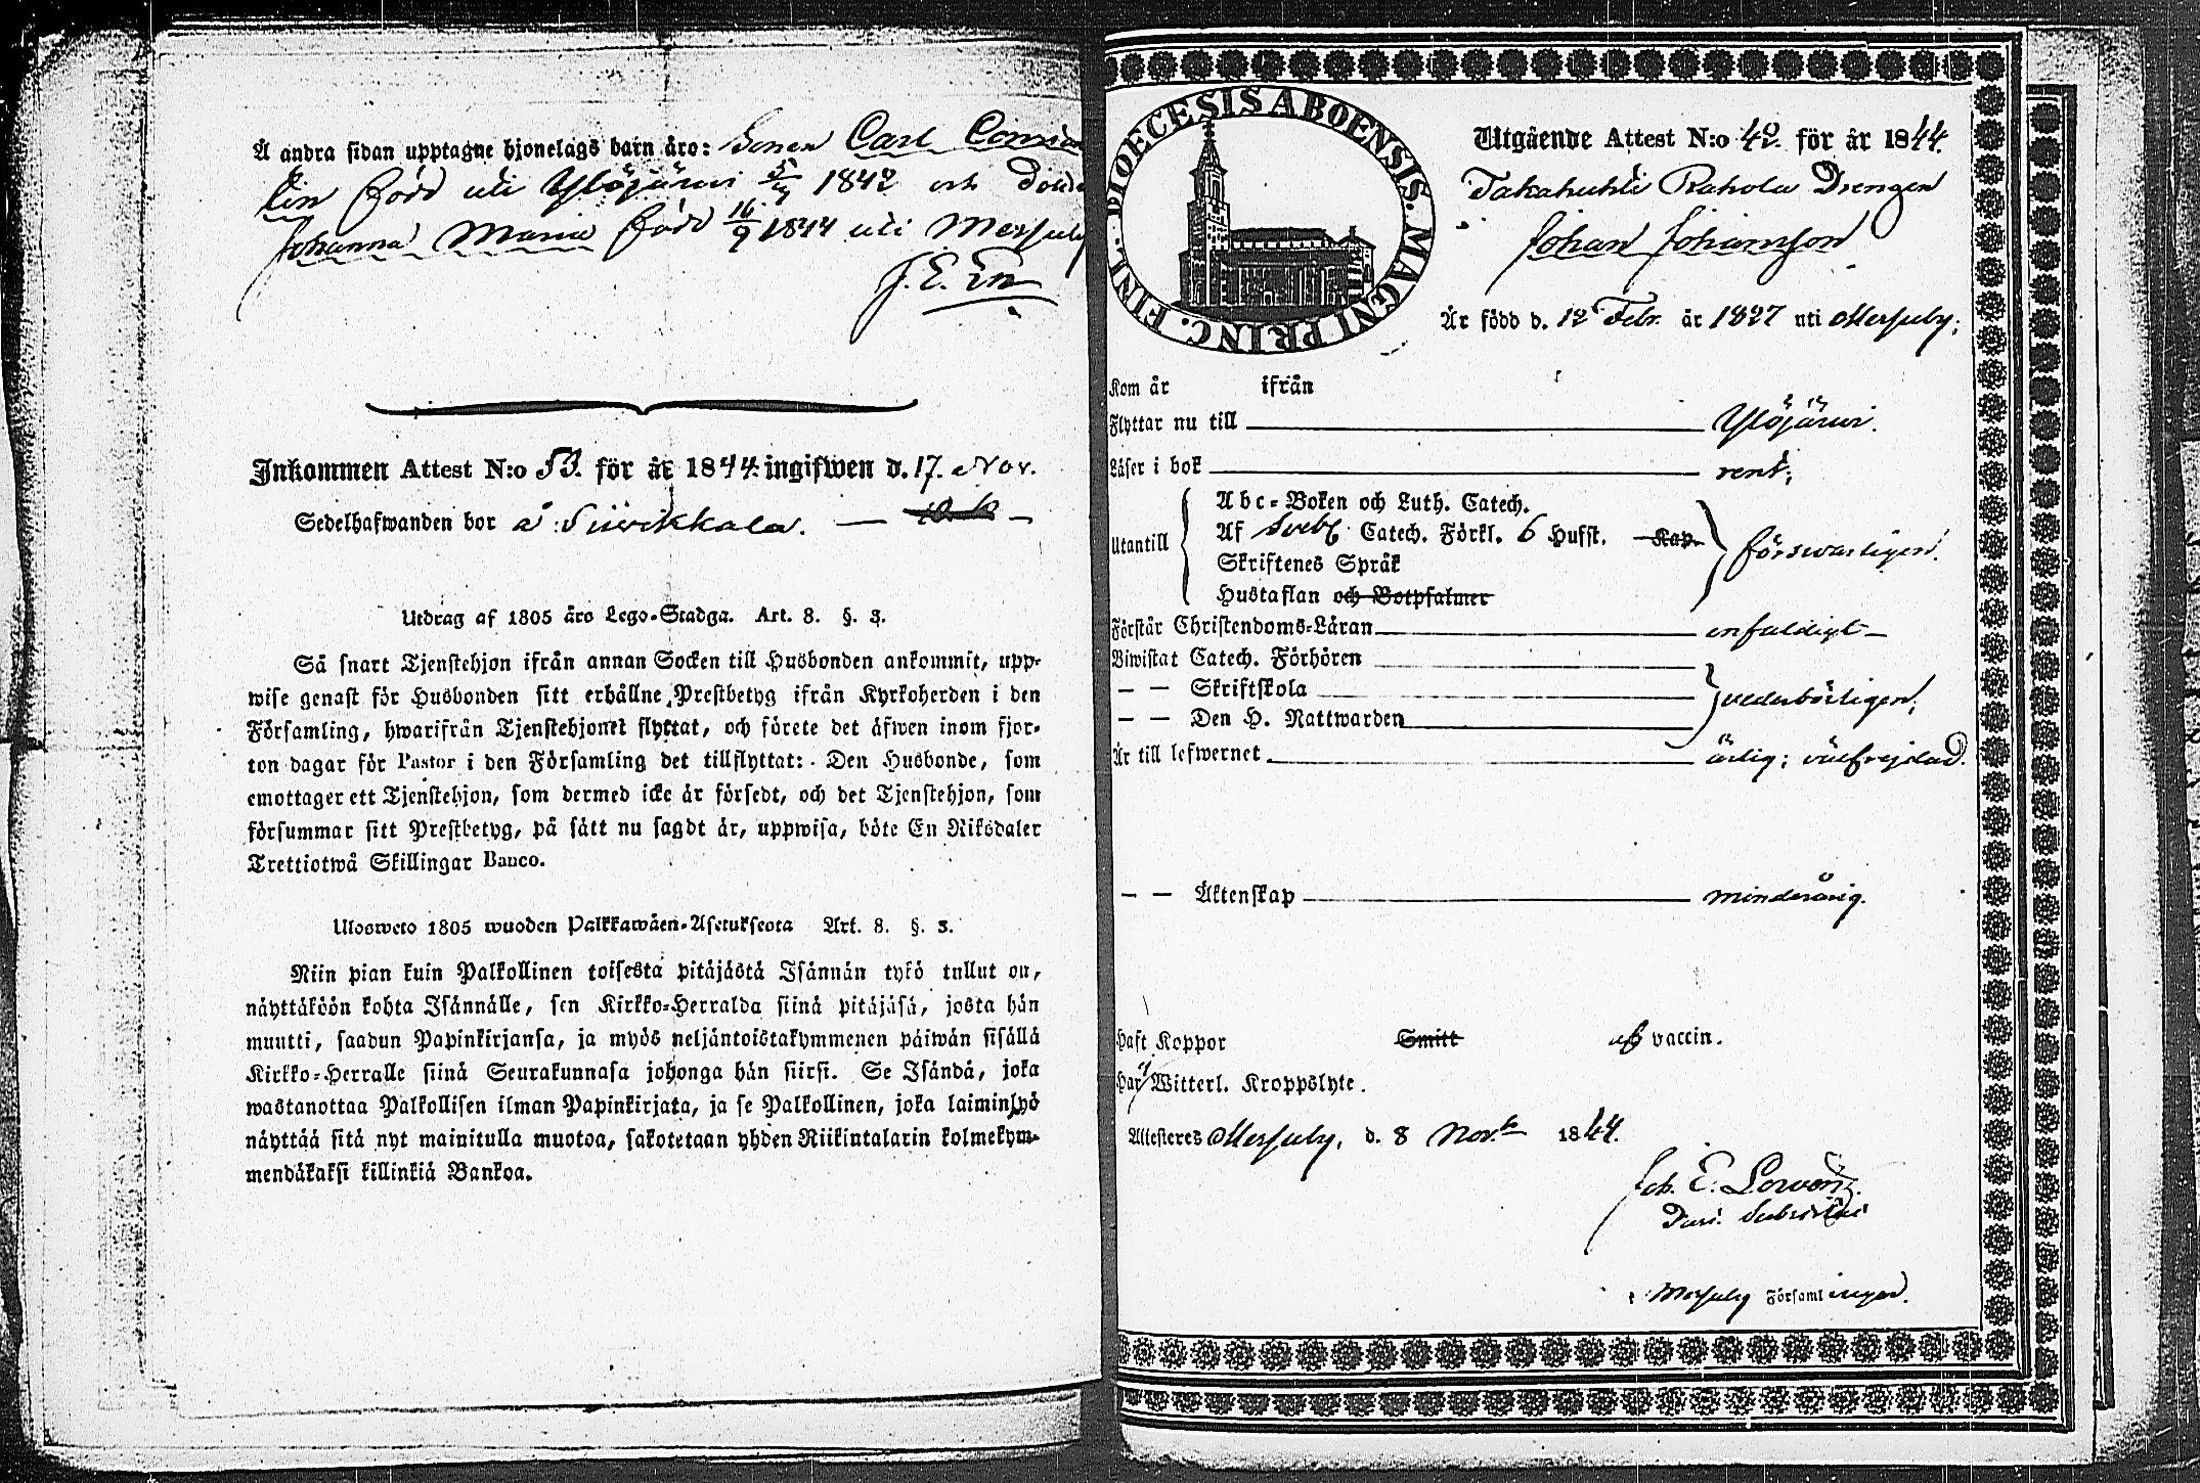 Å andra sidan upptagne hjonelags barn äro: Sonen Carl
lin född uti Ylöjärvi 5/4 1842 och
Johanna Maria född 16/9 1844 uti Messuby
J. E.
Inkommen Attest N:o 53. för år 1844. ingifwen d. 17. Nov.
Sedelhafwanden bor å Siivikkala. —
Utdrag af 1805 åro Lego-Stadga. Art. 8. §. 3.
Så snart Tjenstehjon ifrån annan Socken till Husbonden ankommit, upp-
wise genast för Husbonden sitt erhållne Prestbetyg ifrån Kyrkoherden i den
Församling, hwarifrån Tjenstehjonet flyttat, och förete det äfwen inom fjor-
ton dagar för Pastor i den Församling det tillflyttat: Den Husbonde, som
emottager ett Tjenstehjon, som dermed icke är försedt, och det Tjenstehjon, som
försummar sitt Prestbetyg, på sätt nu sagdt är, uppwisa, böte En Riksdaler
Trettiotwå Skillingar Banco.
Ulosweto 1805 wuoden Palkkawäen-Asetuksesta Art. 8. §. 3.
Niin pian kuin Palkollinen toisesta pitäjästä Isännän tykö tullut on,
näyttäköön kohta Isännälle, sen Kirkko-Herralda siinä pitäjäsä, josta hän
muutti, saadun Papinkirjansa, ja myös neljäntoistakymmenen päiwän sisällä
Kirkko-Herralle siinä Seurakunnasa johonga hän siirsi. Se Isändä, joka
wastanottaa Palkollisen ilman Papinkirjata, ja se Palkollinen, joka laiminlyö
näyttää sitä nyt mainitulla muotoa, sakotetaan yhden Riikintalarin kolmekym-
mendäkaksi killinkiä Bankoa.
DIOECESIS ABOENSIS. MAGNI PRINC. FINL.
Utgående Attest N:o 42. för år 1844.
Takahuhti Rahola Drengen
Johan Johansson
Är född d. 12 Febr. år 1827 uti Messuby;
Kom år ifrån
Flyttar nu till Ylöjärvi.
Läser i bok rent;
Abc-Boken och Luth. Catech.
Utantill Af Sveb. Catech. Förkl. 6 Hufst. Kap. försvarligen.
Skriftenes Språk
Hustaflan och Botpsalmer
Förstår Christendoms-Läran enfaldigt
Biwistat Catech. Förhören
— — Skriftskola vederbörligen;
— — Den H. Nattwarden
Är till lefwernet ärlig; välfrejdad.
— — Äktenskap minderårig.
Haft Koppor Smitt af vaccin.
Har ej Witterl. Kroppslyte.
Attesteras Messuby, d. 8 Nov. 1844.
Joh. E.
i Messuby Församlingen.